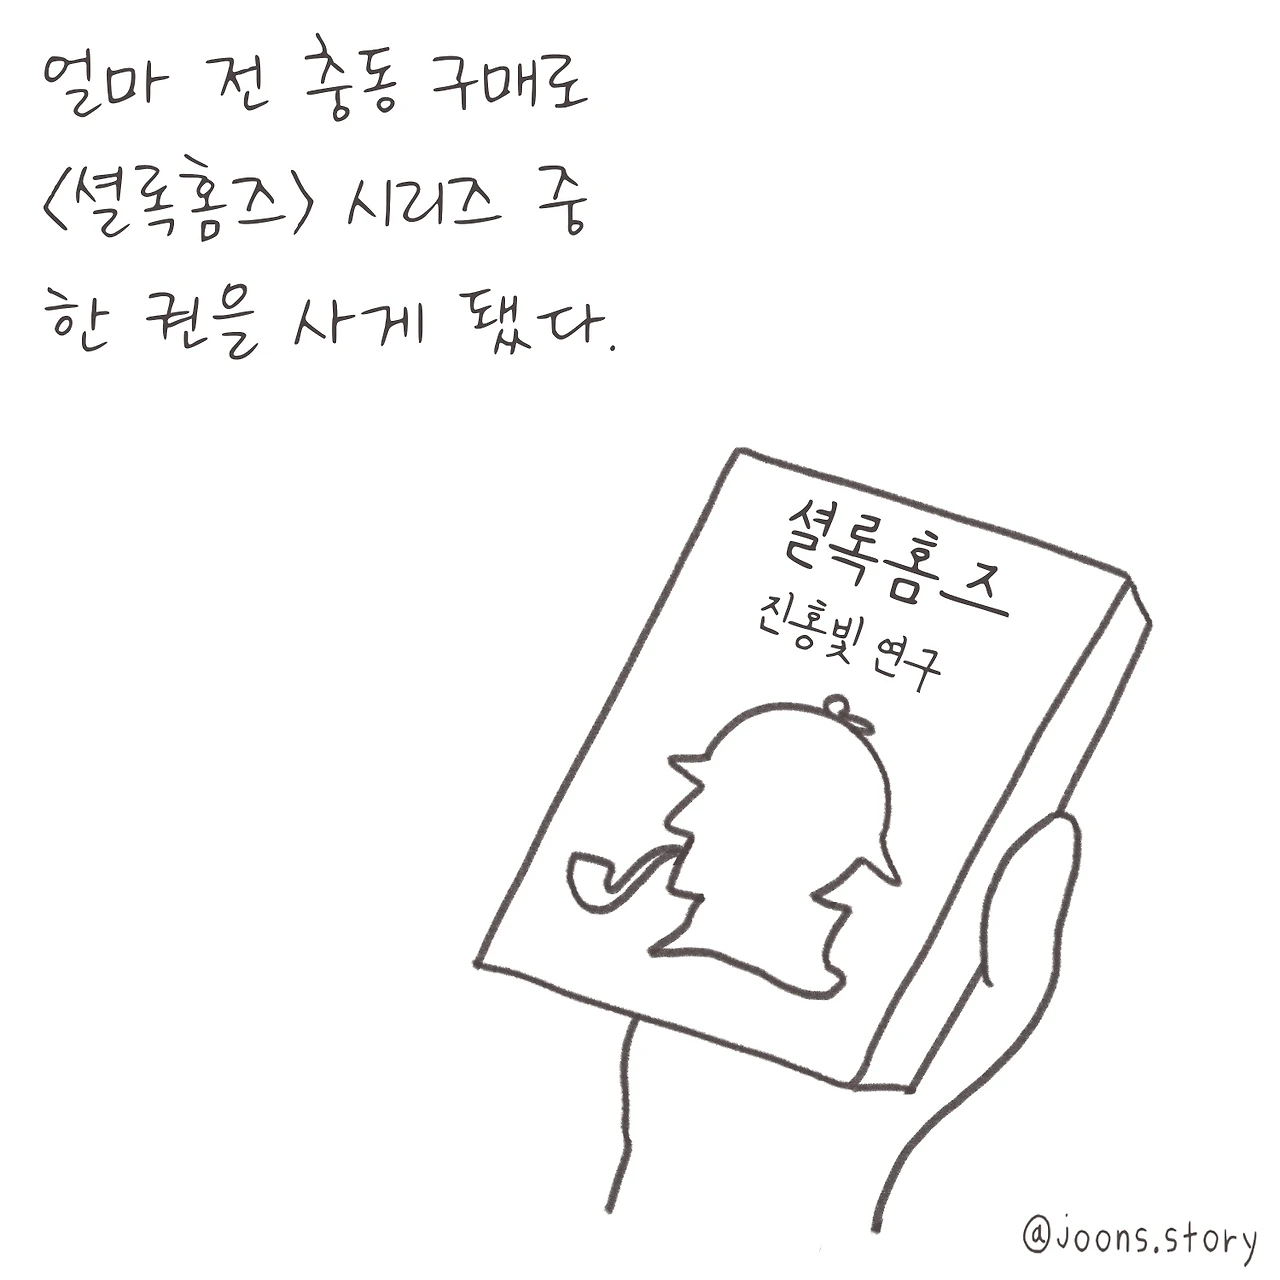 얼마 전 충동 구매로
<셜록홈즈> 시리즈 중
한 권을 사게 됐다.
셜록홈즈
진홍빛 연구
@joons.story